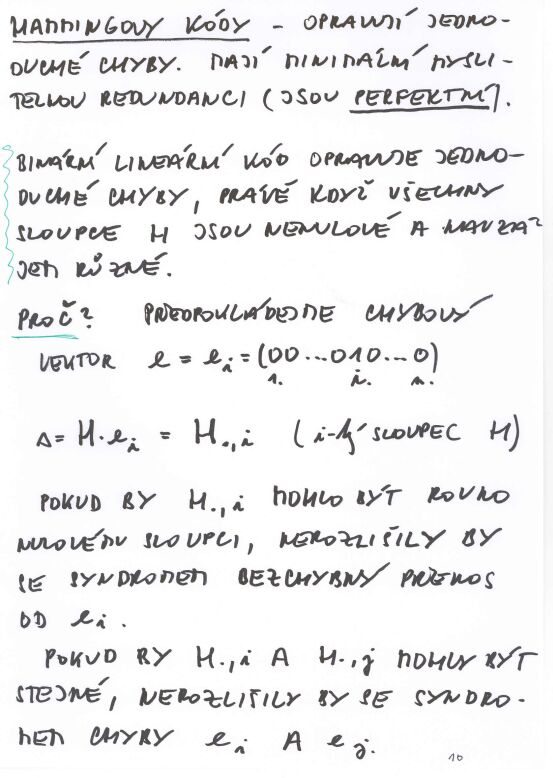 HAMMINGOVY KÓDY - OPRAVUJÍ JEDNO-
DUCHÉ CHYBY. MAJÍ MINIMÁLNÍ MYSLI-
TELNOU REDUNDANCI (JSOU PERFEKTNÍ).
BINÁRNÍ LINEÁRNÍ KÓD OPRAVUJE JEDNO-
DUCHÉ CHYBY, PRÁVĚ KDYŽ VŠECHNY
SLOUPCE H JSOU NENULOVÉ A NAVZÁ-
JEM RŮZNÉ.
PROČ? PŘEDPOKLÁDEJME CHYBOVÝ
VEKTOR e = e_i = (00...010...0)
1. i. n.
s = H·e_i = H.,i (i-tý SLOUPEC H)
POKUD BY H.,i MOHLO BÝT ROVNO
NULOVÉMU SLOUPCI, NEROZLIŠILY BY
SE SYNDROMEM BEZCHYBNÝ PŘENOS
OD e_i.
POKUD BY H.,i A H.,j MOHLY BÝT
STEJNÉ, NEROZLIŠILY BY SE SYNDRO-
MEM CHYBY e_i A e_j.
10